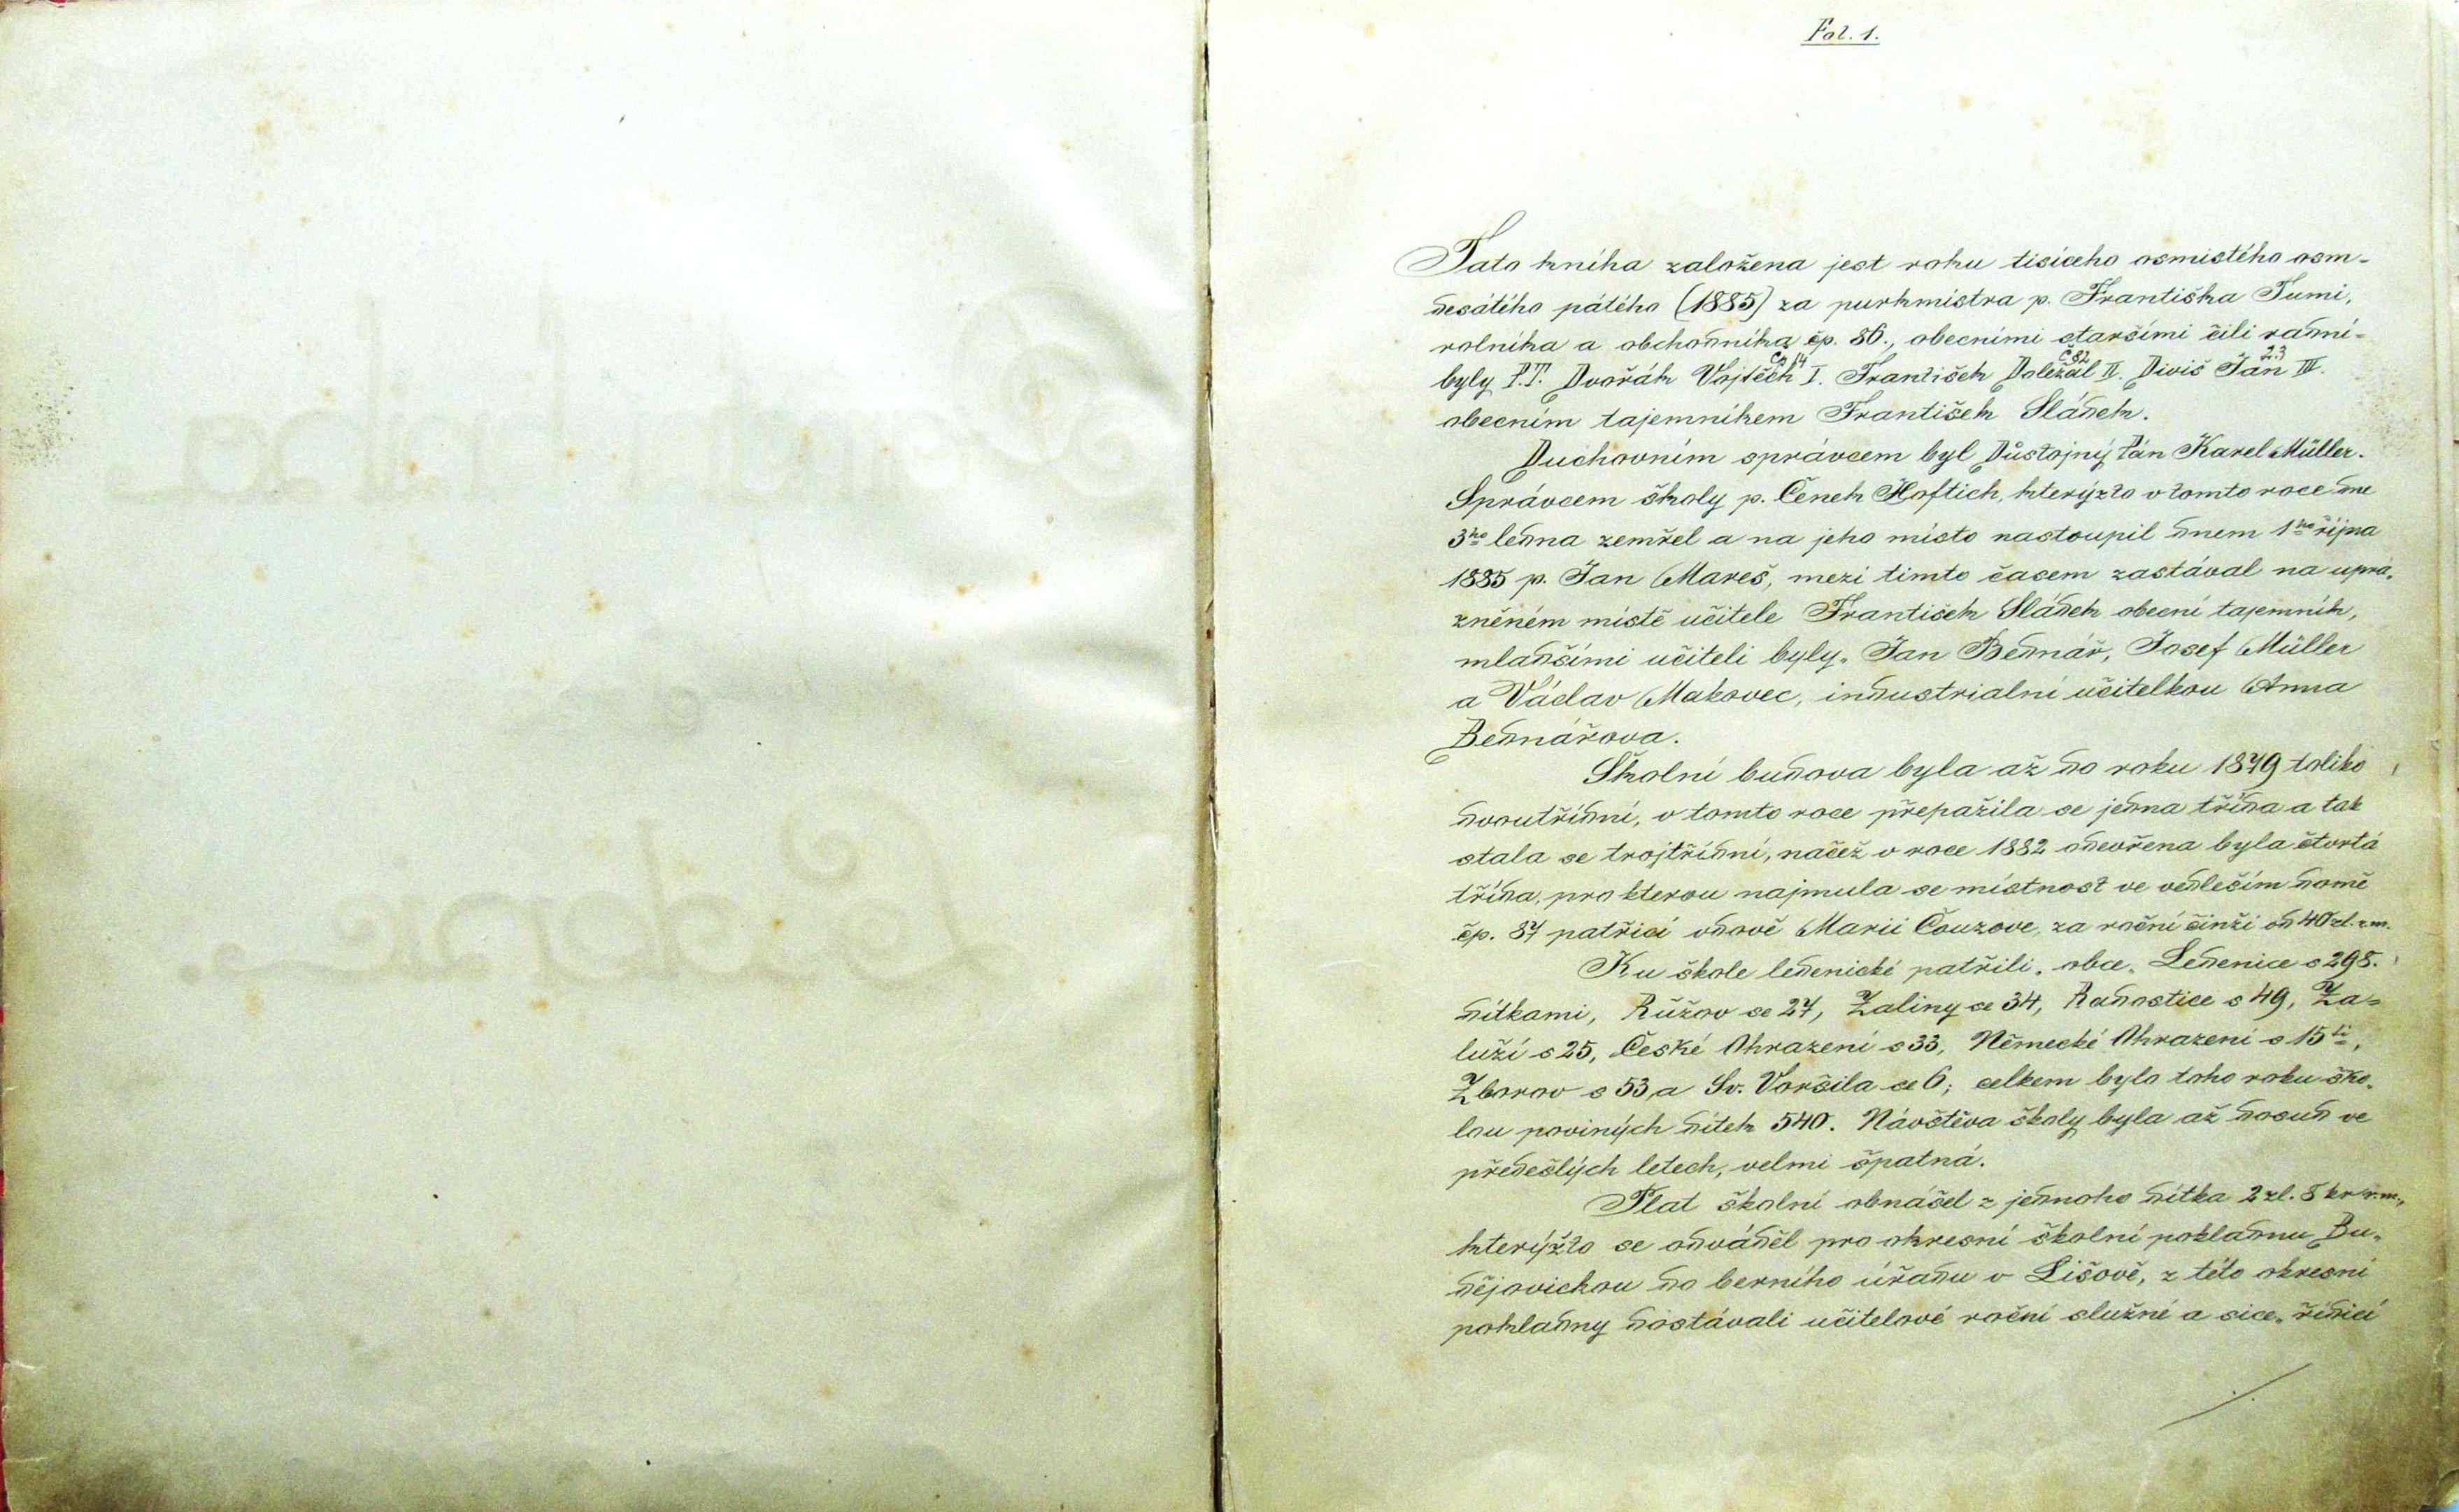 Fol. 1.
Tato kniha založena jest roku tisíceho osmistého osm-
desátého pátého (1885) za purkmistra p. Františka Tumi,
rolníka a obchodníka čp. 86., obecními staršími čili radní-
byly P.T. Dvořák Vojtěch Čp 14 I. František Doležal Č 82 II. Diviš Jan 23 III.
obecním tajemníkem František Sládek.
Duchovním správcem byl Důstojný Pán Karel Müller.
Správcem školy p. Čeněk Hoftich, kterýzto v tomto roce dne
3ho ledna zemřel a na jeho místo nastoupil dnem 1ho října
1885 p. Jan Mareš, mezi tímto časem zastával na uprá-
zněném místě učitele František Sládek obecní tajemník,
mladšími učiteli byly. Jan Bednář, Josef Müller
a Václav Makovec, industrialní učitelkou Anna
Bednářova.
Školní budova byla až do roku 1879 toliko
dvoutřídní, v tomto roce přepažila se jedna třída a tak
stala se trojtřídní, načež v roce 1882 odevřena byla čtvrtá
třída, pro kterou najmula se místnost ve vedleším domě
čp. 87 patřící vdově Marii Čouzove, za roční činži od 40 zl. r.m.
Ku škole ledenické patřili. obce. Ledenice s 298.
dítkami, Růžov se 27, Zaliny se 34, Radostice s 49, Za-
luží s 25, České Ohrazení s 33, Německé Ohrazení s 15ti,
Zborov s 53, a Sv. Voršila se 6; celkem bylo toho roku ško-
lou poviných dítek 540. Návštěva školy byla až dosud ve
předešlých letech, velmi špatná.
Plat školní obnášel z jednoho dítka 2 zl. 8 kr r.m.,
kterýžto se odváděl pro okresní školní pokladnu Bu-
dějovickou do berního úřadu v Lišově, z této okresní
pokladny dostávali učitelové roční služné a sice. řídící